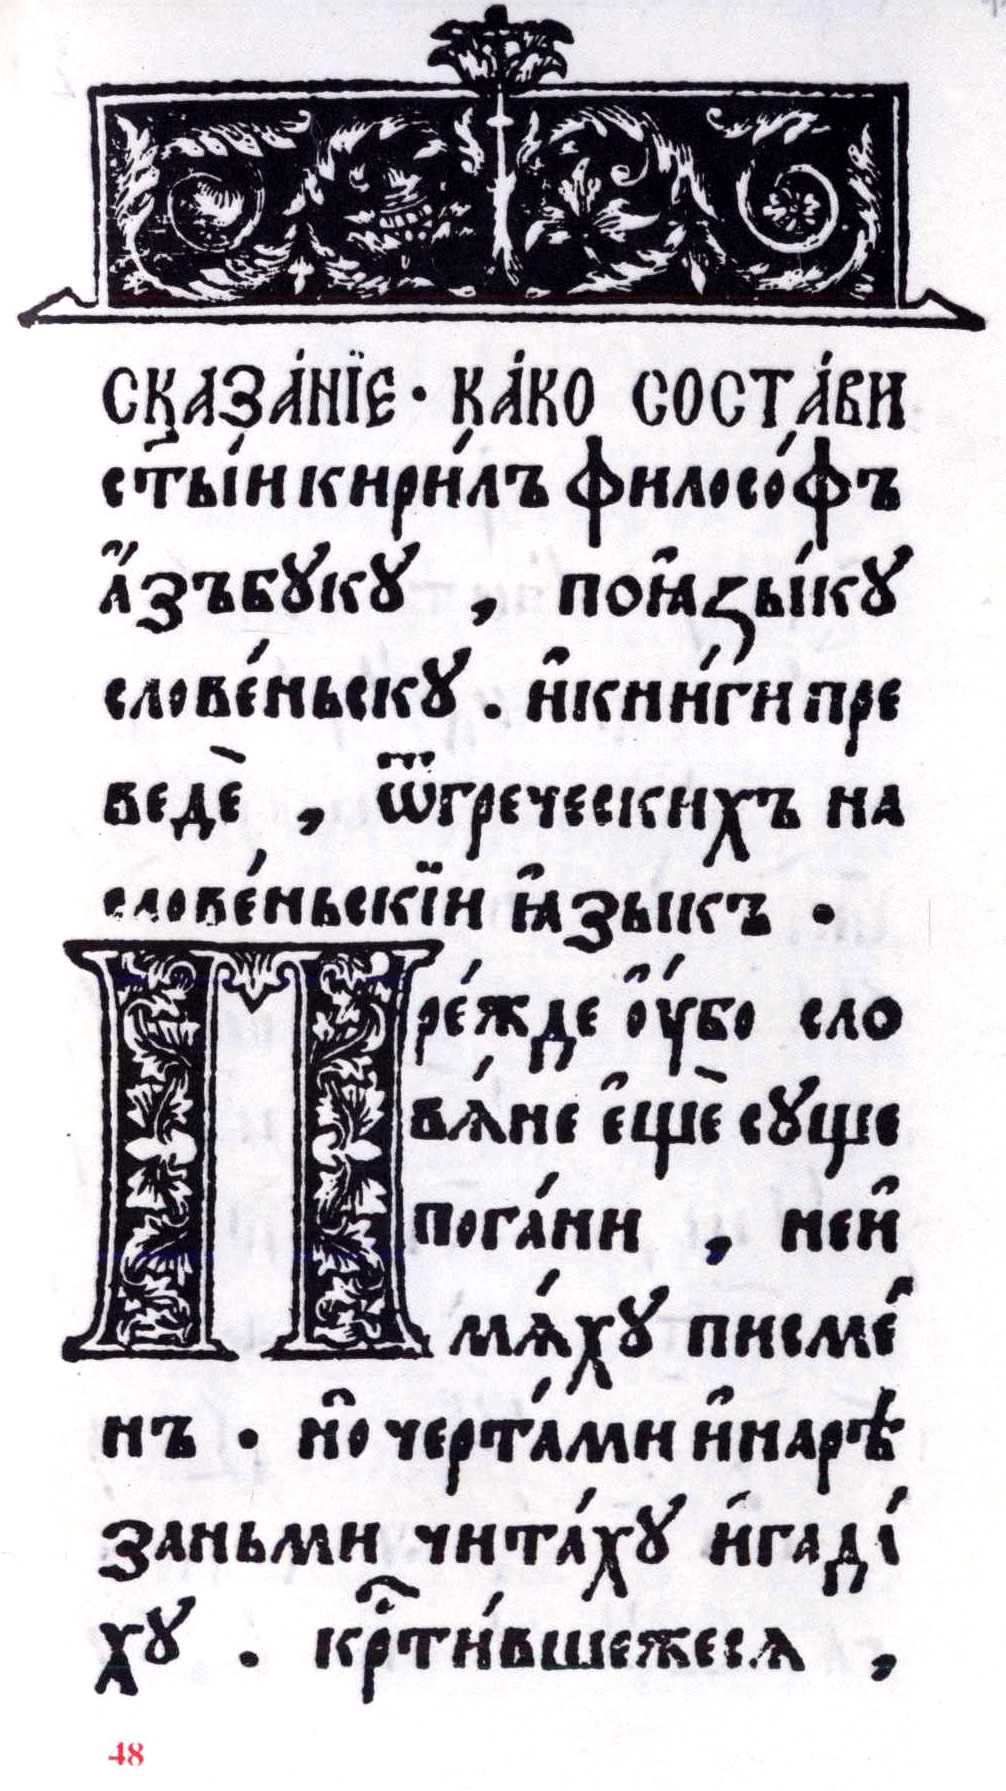 СКАЗА́НЇЕ · КА́КО СОСТА́ВИ
ст҃ы́и кири́лъ филосо́фъ
а҆́зъбꙋкꙋ , поꙗ҆зы́кꙋ
слове́ньскꙋ . и҆кни́ги пре
ведѐ , ѿгреческихъ на
слове́ньскїи ꙗ҆зыкъ .
Пре́жде ѹ҆́бо сло
вѧ́не е҆щѐ сꙋще
пога́ни , неи҆
мѧ́хꙋ писме҆
нъ . но҆ черта́ми и҆нарѣ
заньми чита́хꙋ и҆гадї
хꙋ . крⷭ҇ти́вшежесѧ ,
48